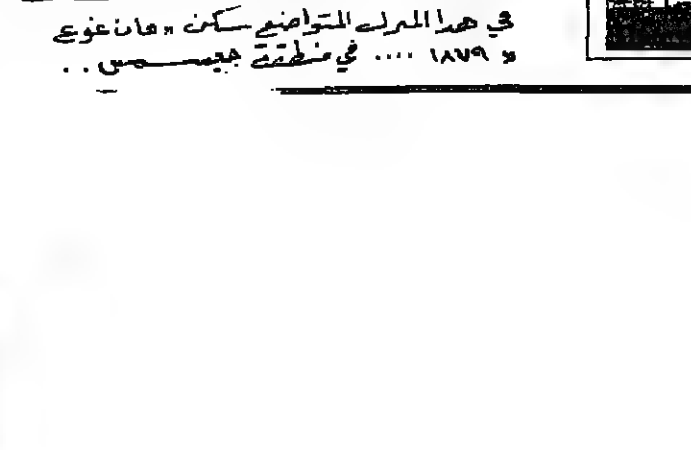 في هذا المنزل المتواضع سكن « فان غوغ
» ١٨٧٩ .... في منطقة جيمس ..